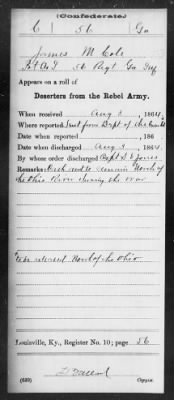 (Confederate)
C 56 Ga
James M Cole
Pvt Co I 56 Regt Ga Inf
Appears on a roll of
Deserters from the Rebel Army.
When received Aug 3, 1864
Where reported Sent from Dept of the Cumb
Date when reported , 186
Date when discharged Aug 3, 1864
By whom order discharged Capt S E Jones
Remarks: to remain North of
the Ohio River during the war
To be released North of the Ohio
Louisville, Ky., Register No. 10; page 56
(639) Copyist.